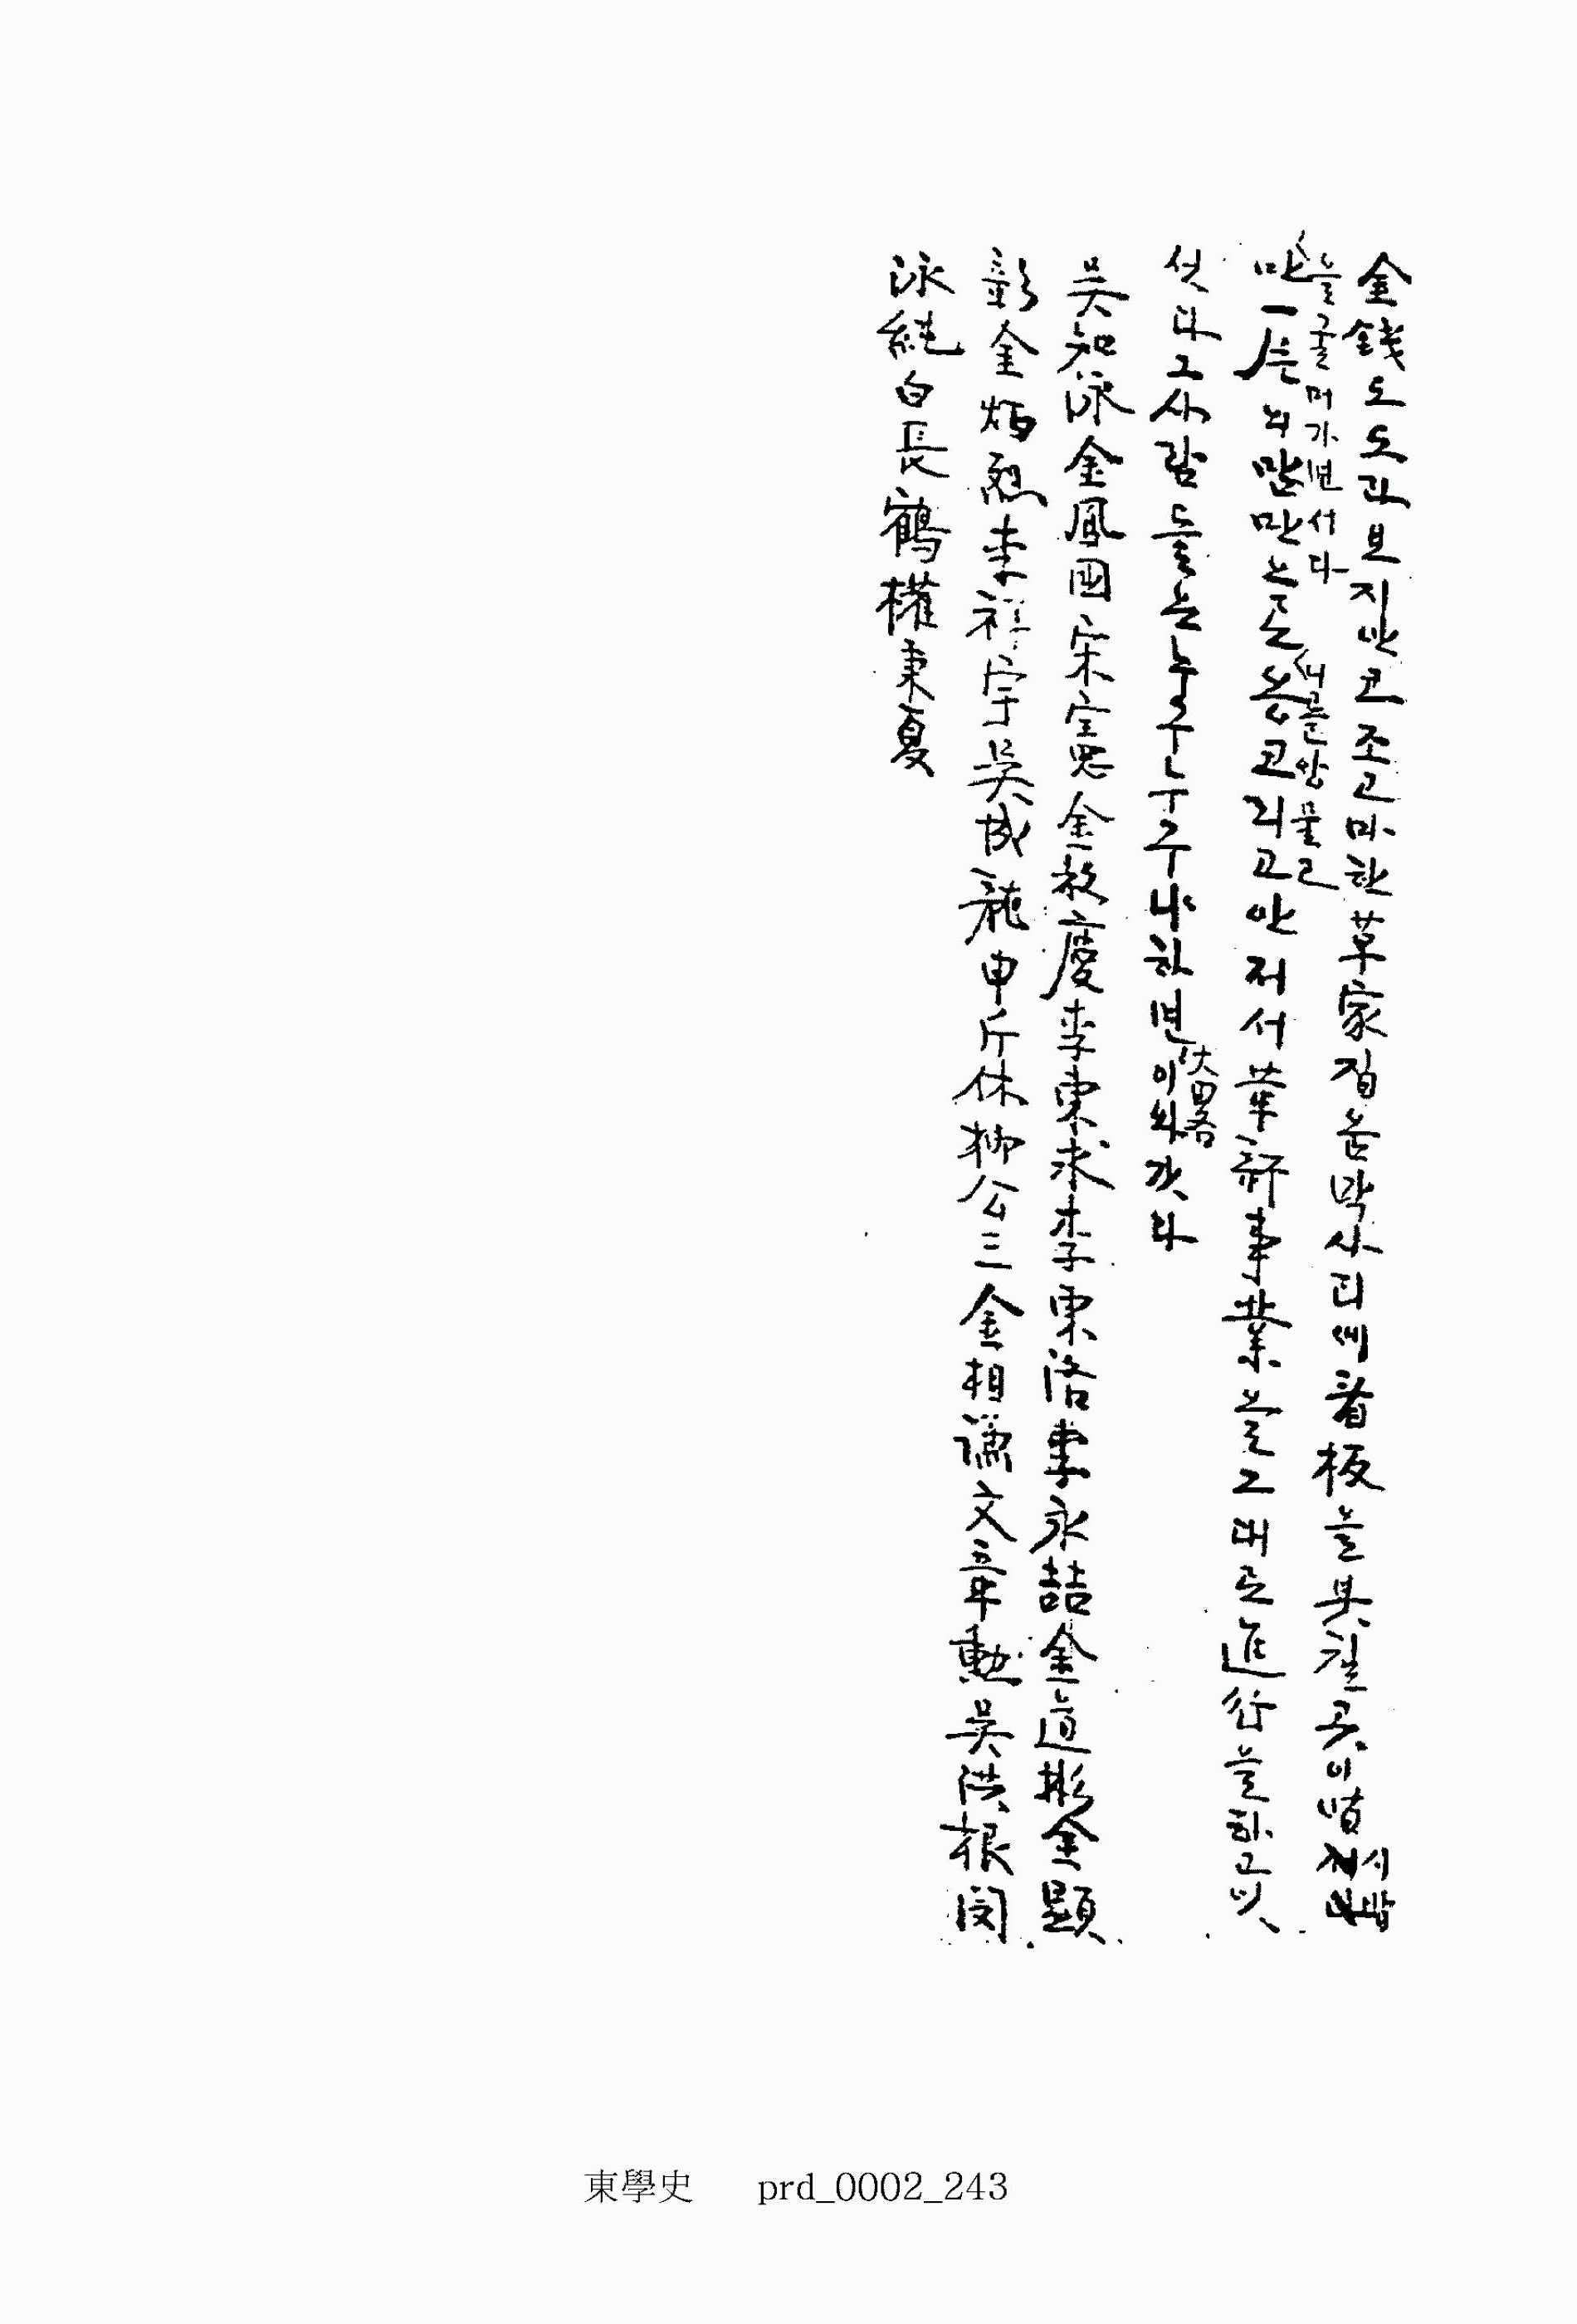 金錢도도라보지안코조고마한草家집온막사리에看板을부칠곳이업시밥
을굴머가면서다
만一은늬맘만는고노코리고안저서革新事業을그대로進行을하고잇
니를앙물고
섯다그사람들는누구누구냐하면이와갓다
大畧
吳知泳金鳳國宋憲金敎慶李東求李東洛李永喆金道彬金顯
彰金炳烈李祥宇吳成龍申斤休柳公三金相謙文章勳吳洪根閔
泳純白長鶴權東夏
東學史 prd_0002_243